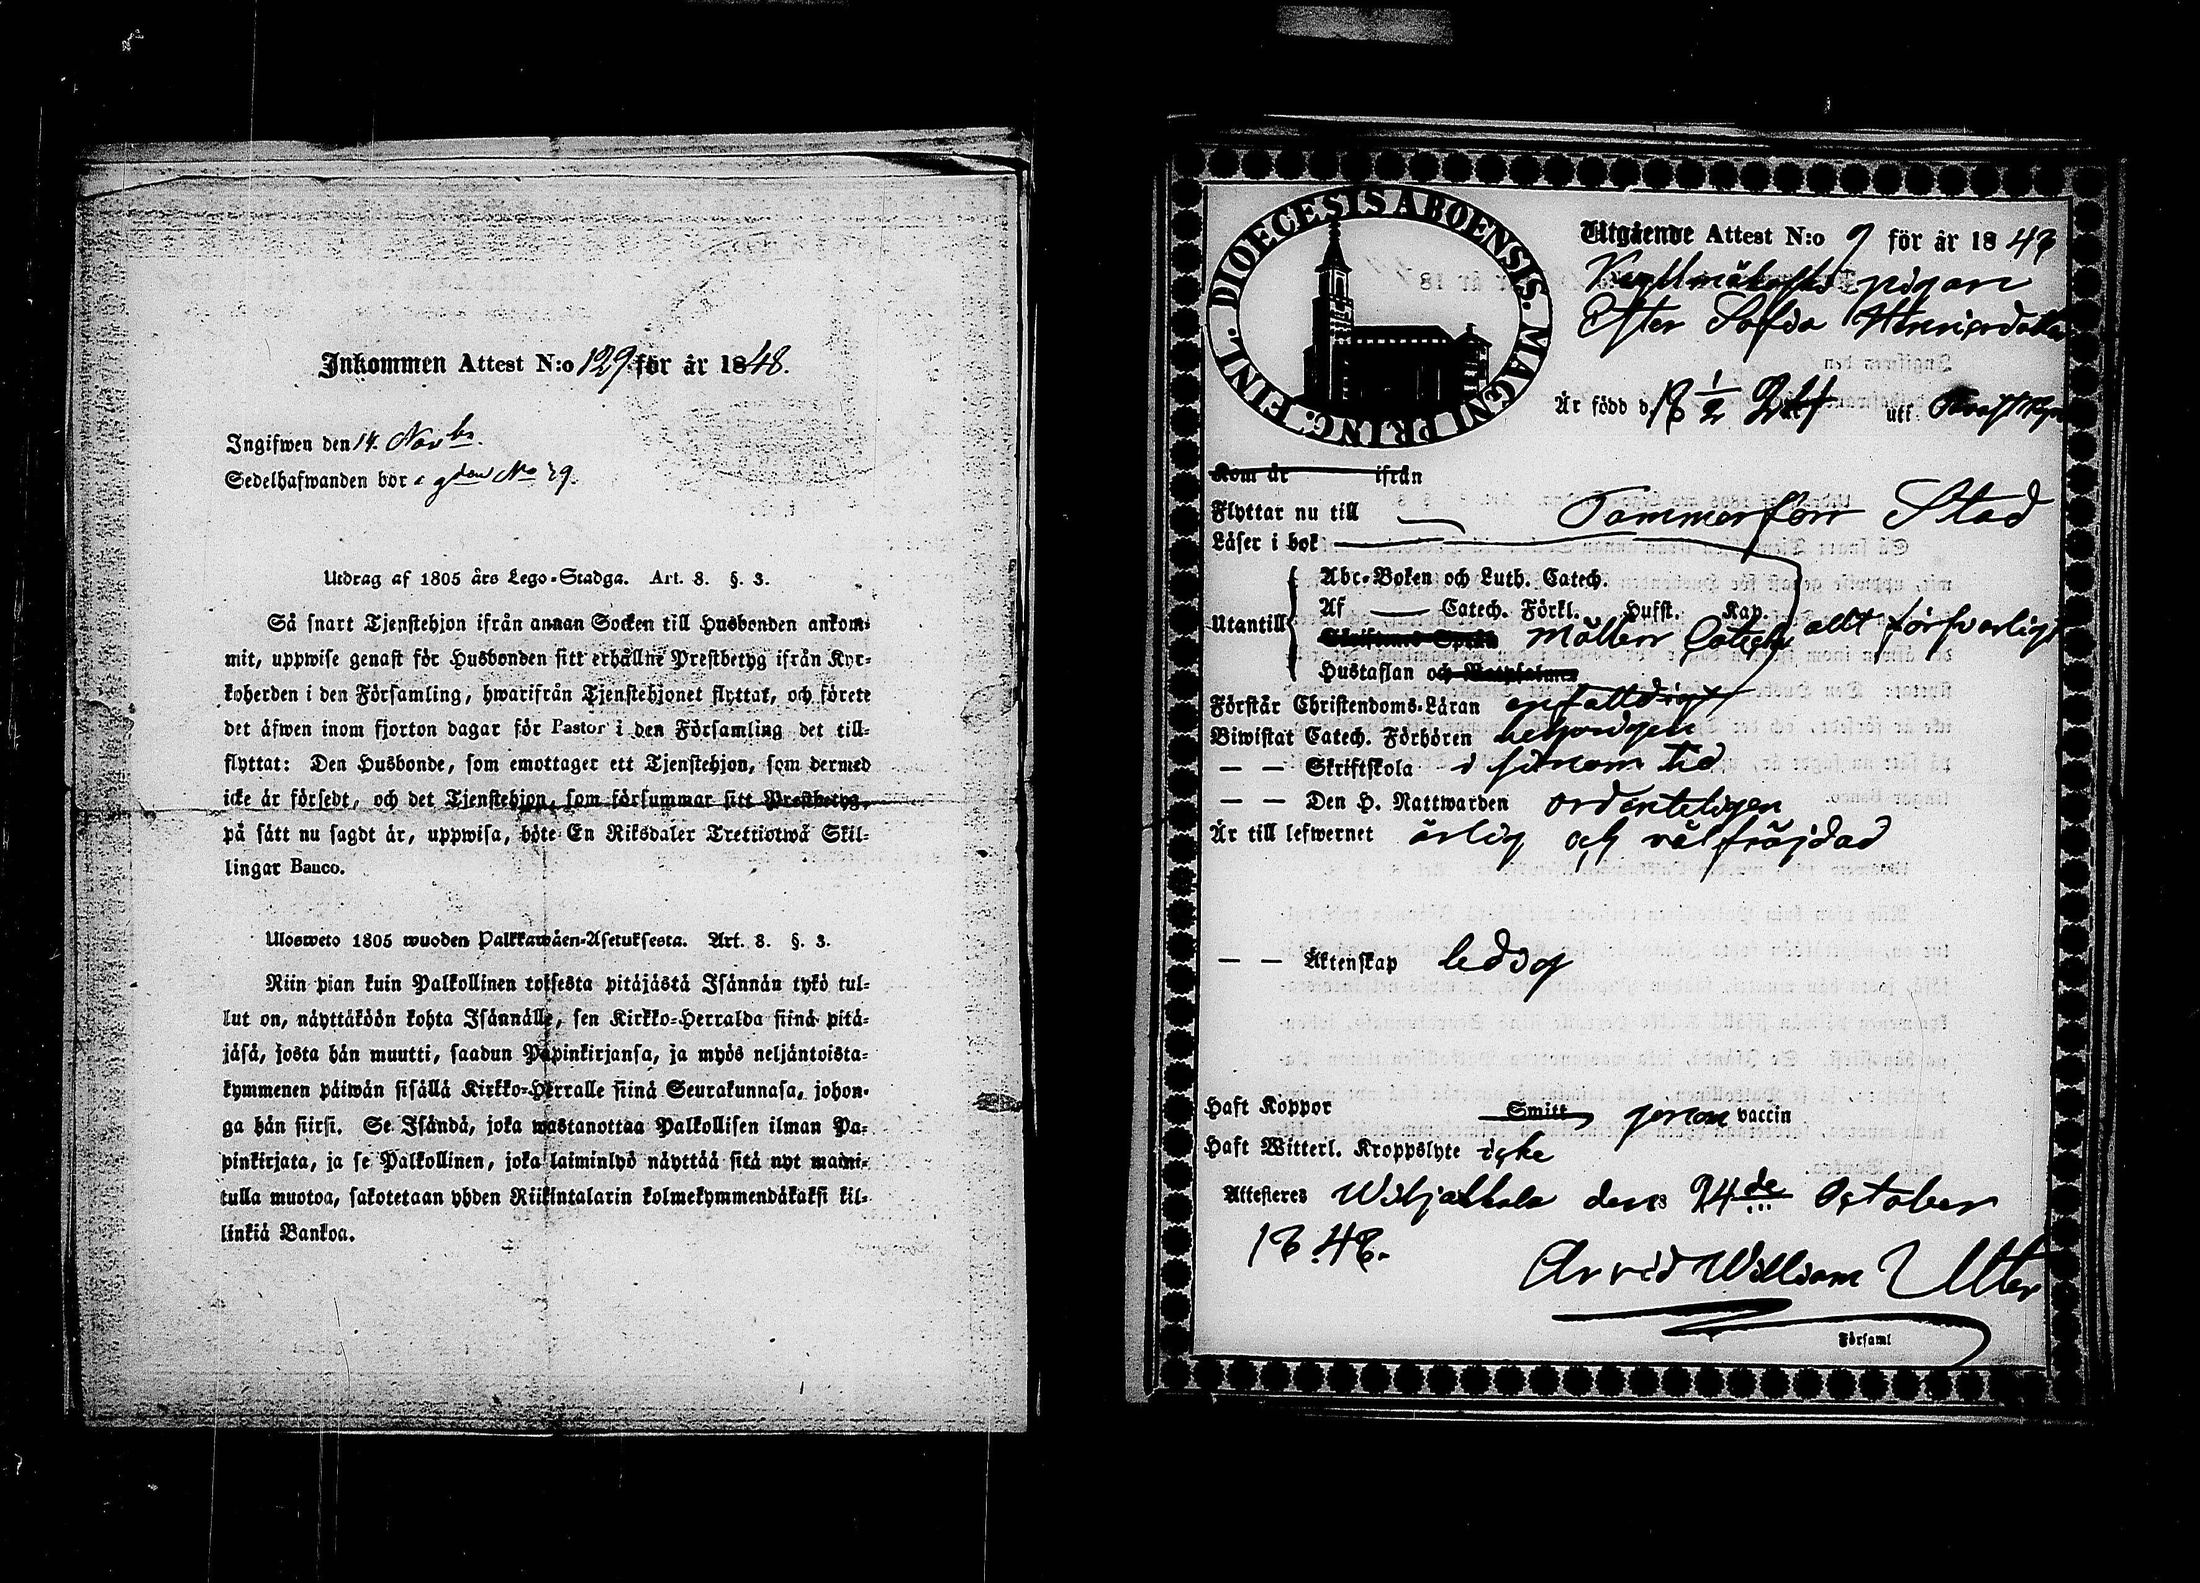 Inkommen Attest N:o 129 för år 1848.
Ingifwen den 14. Novbr.
Sedelhafwanden bor i gden No 29
Utdrag af 1805 års Lego-Stadga. Art. 8. §. 3.
Så snart Tjenstehjon ifrån annan Socken till Husbonden ankom-
mit, uppwise genast för Husbonden sitt erhållne Prestbetyg ifrån Kyr-
koherden i den Församling, hwarifrån Tjenstehjonet flyttat, och förete
det äfwen inom fjorton dagar för Pastor i den Församling det till-
flyttat: Den Husbonde, som emottager ett Tjenstehjon, som dermed
icke är försedt, och det Tjenstehjon, som försummar sitt Prestbetyg,
på sätt nu sagdt är, uppwisa, böte En Riksdaler Trettiotwå Skil-
lingar Banco.
Ulosweto 1805 wuoden Palkkawäen-Asetuksesta. Art. 8. §. 3.
Niin pian kuin Palkollinen toisesta pitäjästä Isännän tykö tul-
lut on, näyttäköön kohta Isännälle, sen Kirkko-Herralda siinä pitä-
jäsä, josta hän muutti, saadun Papinkirjansa, ja myös neljäntoista-
kymmenen päiwän sisällä Kirkko-Herralle siinä Seurakunnasa, johon-
ga hän siirsi. Se Isändä, joka wastanottaa Palkollisen ilman Pa-
pinkirjata, ja se Palkollinen, joka laiminlyö näyttää sitä nyt maini-
tulla muotoa, sakotetaan yhden Riikintalarin kolmekymmendäkaksi kil-
linkiä Bankoa.
FINL. DIOECESIS ABOENSIS. MAGNI PRINC.
Utgående Attest N:o 9 för år 1848
pigan
Ester Sofia Henricsdotter
Är född d. 18 1/2 24 utt
Kom år ifrån
Flyttar nu till Tammerfors Stad
Läser i bok
Abc-Boken och Luth. Catech.
Af Catech. Förkl. Husst. Kap.
Utantill Möllers Catech allt försvarligt
Hustaflan och
Förstår Christendoms-Läran enfalldigt
Biwistat Catech. Förhören behörigen
— — Skriftskola i sinom tid
— — Den H. Nattwarden ordenteligen
Är till lefwernet ärlig och välfräjdad
— — Äktenskap ledig
Haft Koppor Smitt genom vaccin
Haft Witterl. Kroppslyte icke
Attesteres Wiljakkala den 24de October
1848.
Arvid William Utter
Församl